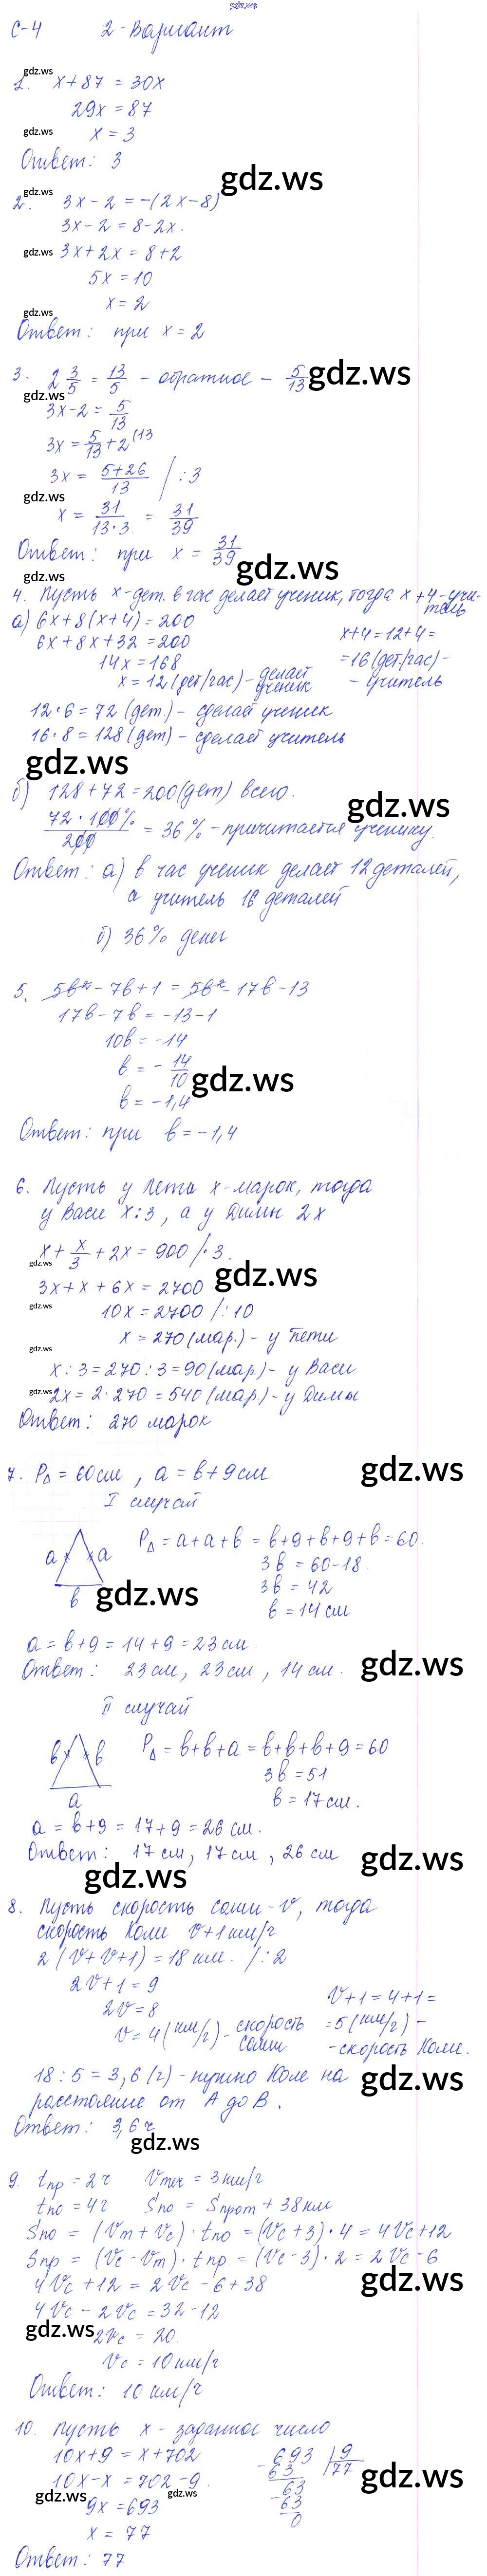 gdz.ws
С-4 2-Вариант
gdz.ws
1. x+87 = 30x
29x = 87
gdz.ws x = 3
Ответ: 3
gdz.ws gdz.ws
2. 3x-2 = -(2x-8)
3x-2 = 8-2x.
gdz.ws 3x+2x = 8+2
5x = 10
x = 2
gdz.ws
Ответ: при x = 2
3. 2 3/5 = 13/5 - обратное - 5/13 gdz.ws
gdz.ws 3x-2 = 5/13
3x = 5/13 + 2 (13
3x = (5+26)/13 /:3
gdz.ws x = 31/(13·3) = 31/39
Ответ: при x = 31/39 gdz.ws
gdz.ws
4. Пусть x-дет. в час делает ученик, тогда x+4-учитель
а) 6x+8(x+4)=200 x+4=12+4=
6x+8x+32=200 =16(дет/час)-
14x=168 - учитель
x=12(дет/час)-делает ученик
12·6=72 (дет.)- сделает ученик
16·8=128(дет)- сделает учитель
gdz.ws
б) 128+72=200(дет) всего. gdz.ws
72·100%/200 = 36%-причитается ученику.
Ответ: а) в час ученик делает 12 деталей,
а учитель 16 деталей
б) 36% денег
5. 5b²-7b+1 = 5b²-17b-13
17b-7b = -13-1
10b = -14
b = - 14/10 gdz.ws
b = -1,4
Ответ: при b = -1,4
6. Пусть у Пети x-марок, тогда
у Васи x:3, а у Димы 2x
x + x/3 + 2x = 900 /·3
gdz.ws gdz.ws
3x+x+6x = 2700
gdz.ws 10x = 2700 /:10
x = 270(мар.)- у Пети
gdz.ws
x:3=270:3=90(мар.)- у Васи
gdz.ws 2x=2·270=540(мар)- у Димы
Ответ: 270 марок
7. P△ = 60см, a = b+9см gdz.ws
I случай
a a P△ = a+a+b = b+9+b+9+b=60.
3b = 60-18.
b gdz.ws 3b = 42
b = 14 см
a = b+9 = 14+9 = 23 см.
Ответ: 23 см, 23 см, 14 см. gdz.ws
II случай
b b P△ = b+b+a = b+b+b+9=60
3b = 51
a b = 17 см.
a = b+9 = 17+9 = 26 см.
Ответ: 17 см, 17 см, 26 см gdz.ws
gdz.ws
8. Пусть скорость Саши-v, тогда
скорость Коли v+1 км/ч
2(v+v+1)=18 км. /:2
2v+1=9 v+1=4+1=
2v=8 =5(км/ч)-
v=4(км/ч)-скорость Саши -скорость Коли.
18:5=3,6(ч)-нужно Коле на gdz.ws
расстояние от A до B.
Ответ: 3,6 ч
gdz.ws
9. tпр=2ч Vтеч = 3км/ч
tпо=4ч Sпо = Sпрот + 38км
Sпо = (Vт+Vс)·tпо = (Vс+3)·4 = 4Vс+12
Sпр = (Vс-Vт)·tпр = (Vс-3)·2 = 2Vс-6
4Vс+12 = 2Vс-6+38 gdz.ws
4Vс-2Vс = 32-12
gdz.ws 2Vс = 20.
Vс = 10 км/ч
Ответ: 10 км/ч
10. Пусть x - заданное число
10x+9 = x+702 693 | 9
10x-x = 702-9. -63 77 gdz.ws
gdz.ws gdz.ws 63
9x=693 -63
x = 77 0
Ответ: 77